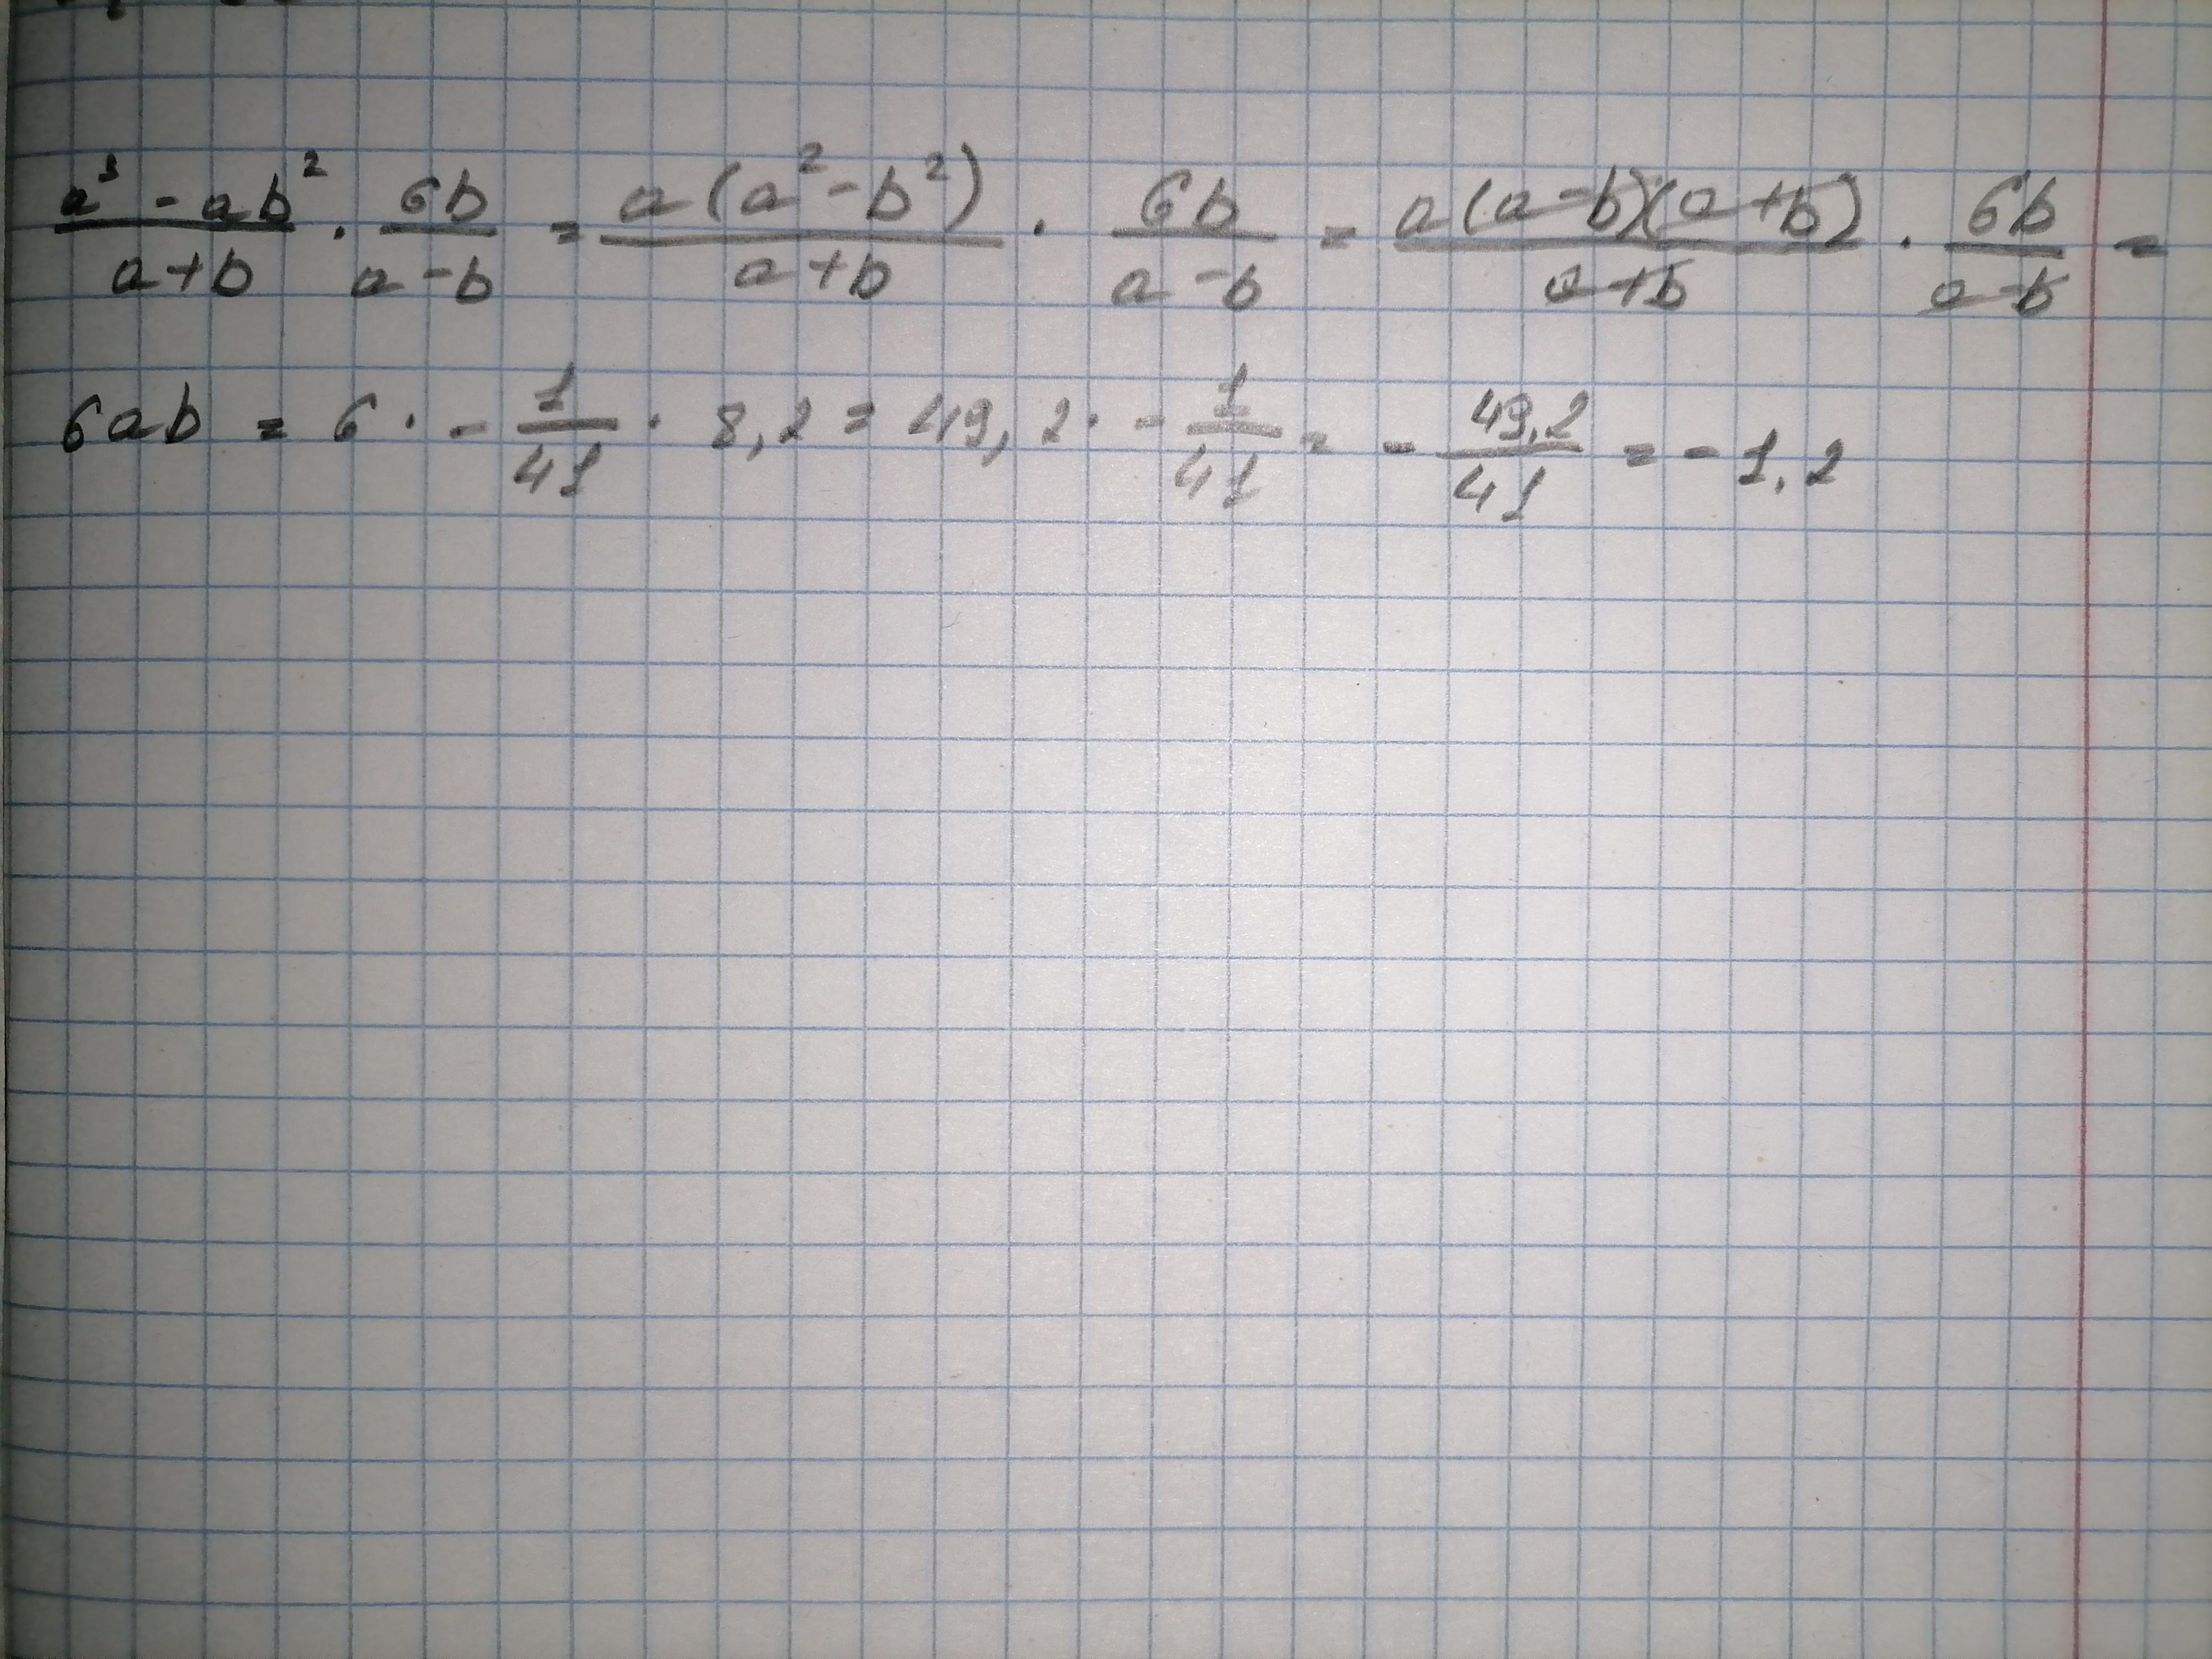 a³ - ab² / a+b · 6b / a-b = a(a²-b²) / a+b · 6b / a-b = a(a-b)(a+b) / a+b · 6b / a-b =
6ab = 6 · - 1/41 · 8,2 = 49,2 · - 1/41 = - 49,2/41 = - 1,2